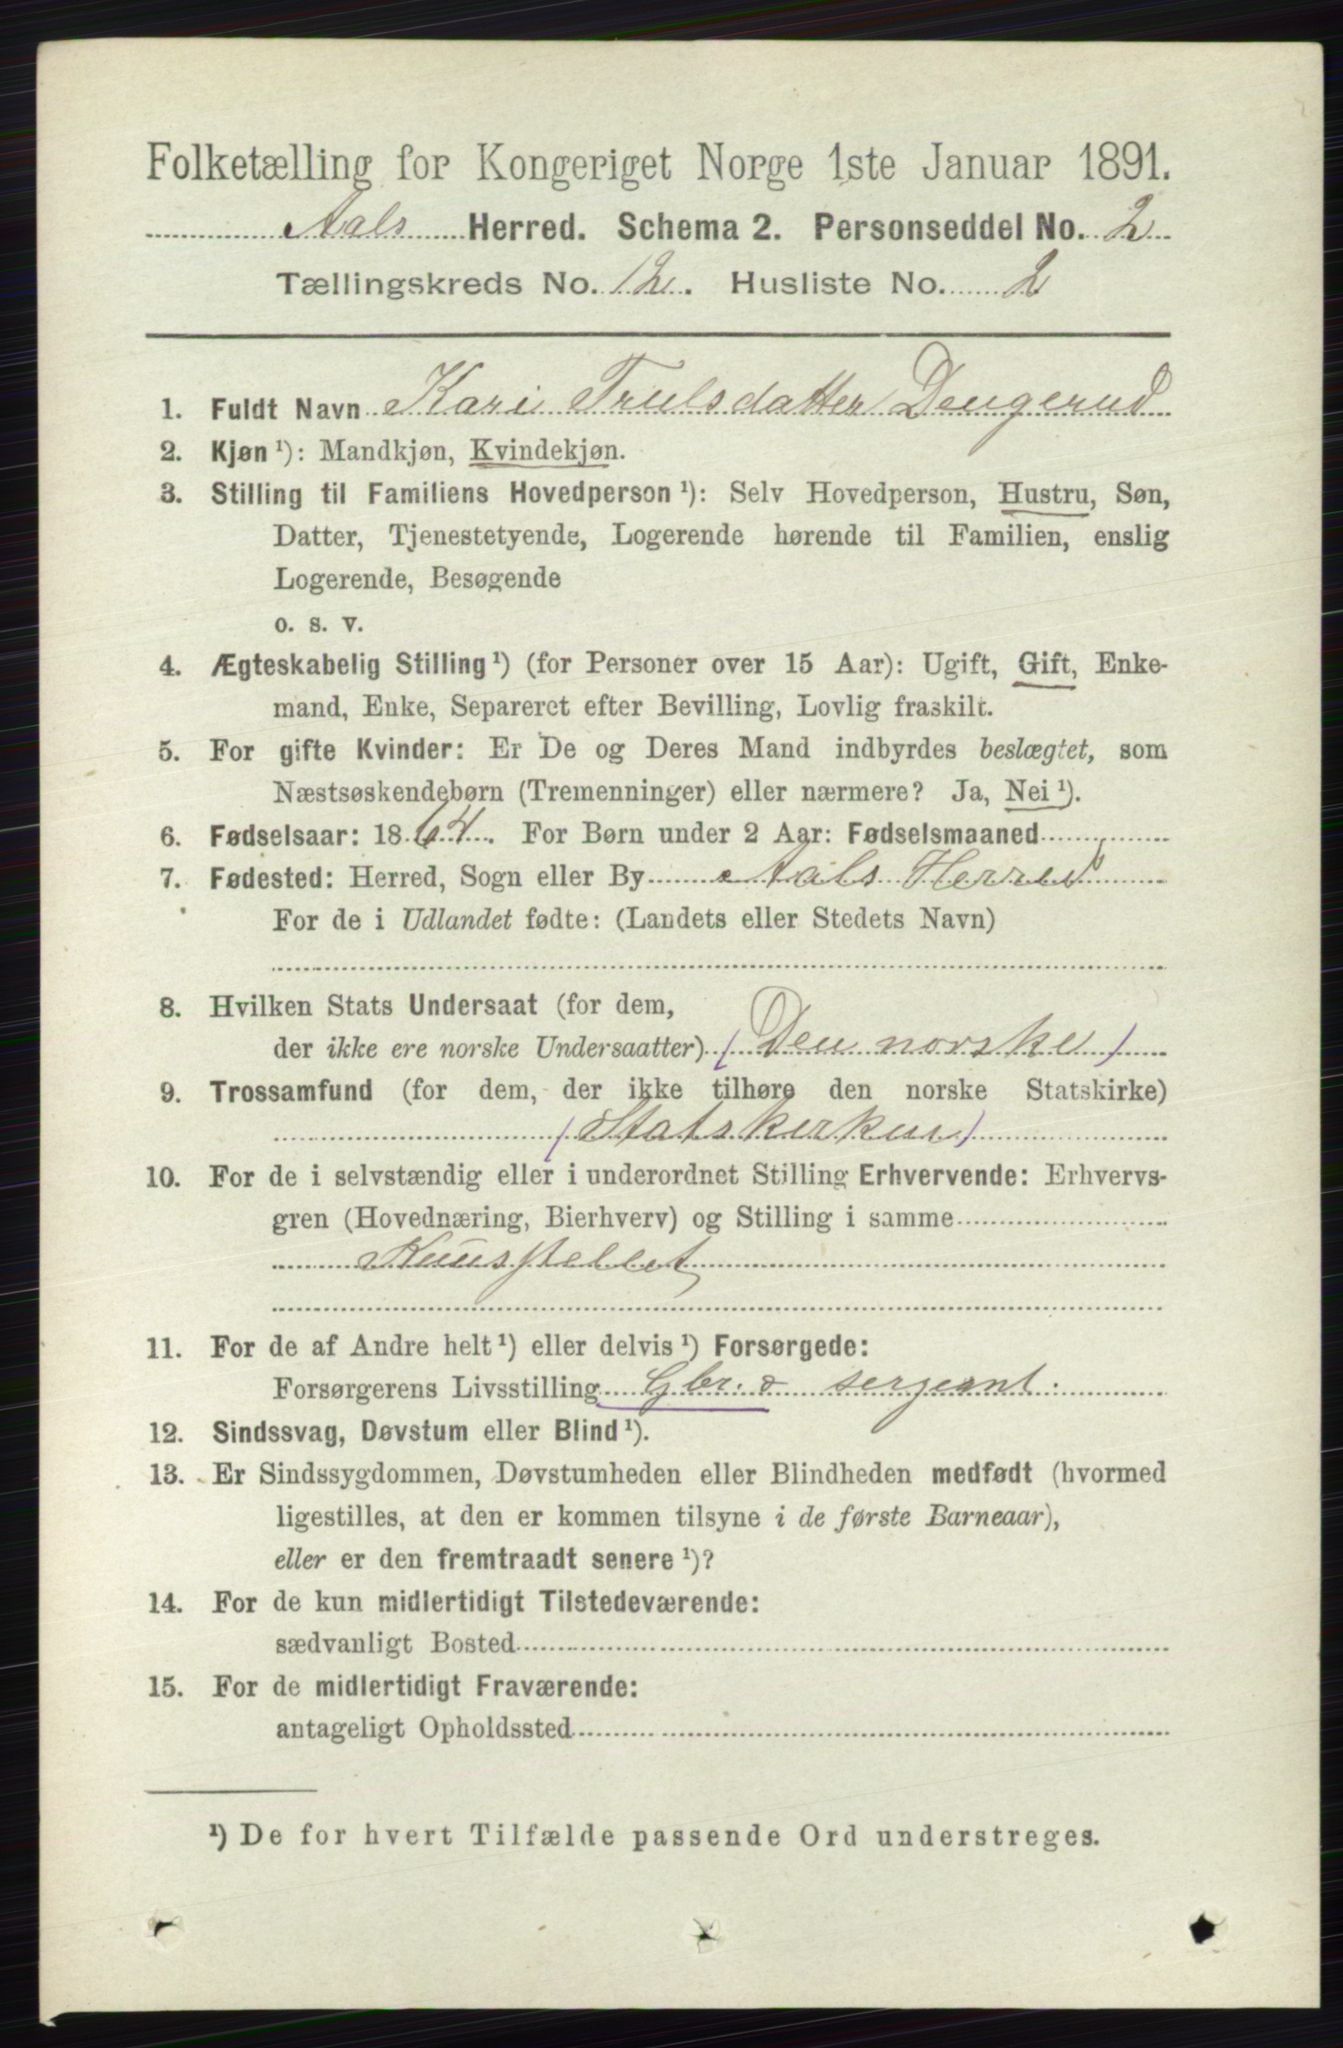 Folketælling for Kongeriget Norge 1ste Januar 1891.
Aals Herred. Schema 2. Personseddel No. 2
Tællingskreds No. 12. Husliste No. 2
1. Fuldt Navn Kari Trulsdatter Dengerud
2. Kjøn ¹): Mandkjøn, Kvindekjøn.
3. Stilling til Familiens Hovedperson ¹): Selv Hovedperson, Hustru, Søn,
Datter, Tjenestetyende, Logerende hørende til Familien, enslig
Logerende, Besøgende
o. s. v.
4. Ægteskabelig Stilling ¹) (for Personer over 15 Aar): Ugift, Gift, Enke-
mand, Enke, Separeret efter Bevilling, Lovlig fraskilt.
5. For gifte Kvinder: Er De og Deres Mand indbyrdes beslægtet, som
Næstsøskendebørn (Tremenninger) eller nærmere? Ja, Nei ¹).
6. Fødselsaar: 1864. For Børn under 2 Aar: Fødselsmaaned
7. Fødested: Herred, Sogn eller By Aals Herred
For de i Udlandet fødte: (Landets eller Stedets Navn)
8. Hvilken Stats Undersaat (for dem,
der ikke ere norske Undersaatter) (Den norske)
9. Trossamfund (for dem, der ikke tilhøre den norske Statskirke)
(Statskirken)
10. For de i selvstændig eller i underordnet Stilling Erhvervende: Erhvervs-
gren (Hovednæring, Bierhverv) og Stilling i samme
Huusstellet
11. For de af Andre helt ¹) eller delvis ¹) Forsørgede:
Forsørgerens Livsstilling Gbr. & sergeant.
12. Sindssvag, Døvstum eller Blind ¹).
13. Er Sindssygdommen, Døvstumheden eller Blindheden medfødt (hvormed
ligestilles, at den er kommen tilsyne i de første Barneaar),
eller er den fremtraadt senere ¹)?
14. For de kun midlertidigt Tilstedeværende:
sædvanligt Bosted
15. For de midlertidigt Fraværende:
antageligt Opholdssted
¹) De for hvert Tilfælde passende Ord understreges.